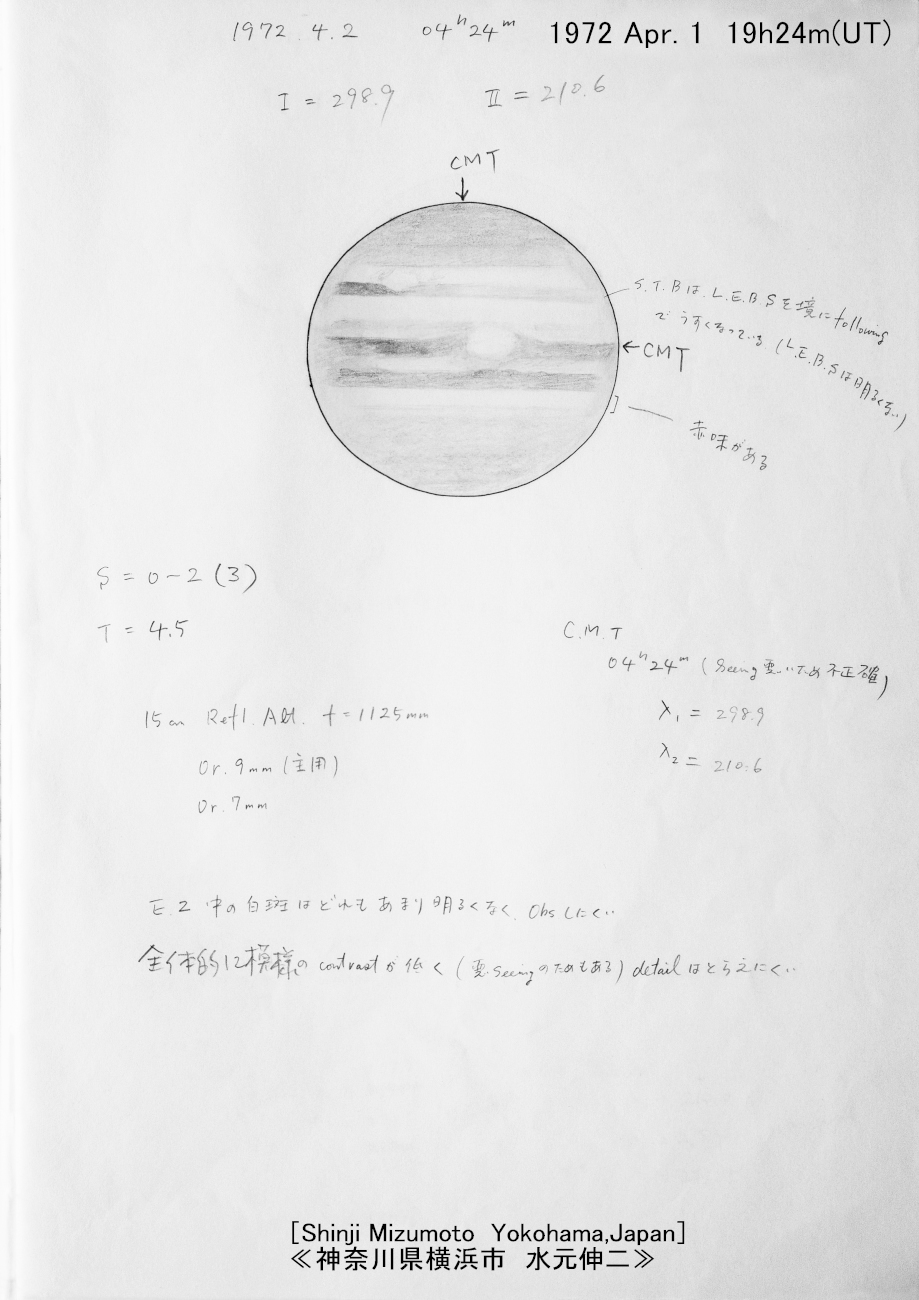 1972.4.2 04h24m 1972 Apr. 1 19h24m(UT)
I = 298.9 II = 210.6
CMT
S.T.BはL.E.B.Sを境にfollowing
でうすくなっている (L.E.B.Sは明るくない)
←CMT
赤味がある
S = 0-2 (3)
T = 4.5
C.M.T
04h24m (Seeing悪いため不正確)
15cm Refl. Alt. f=1125mm
λ1 = 298.9
Or. 9mm (主用)
λ2 = 210.6
Or. 7mm
E.Z中の白斑はどれもあまり明るくなく、Obsしにくい.
全体的に模様のcontrastが低く (悪seeingのためもある) detailはとらえにくい.
[Shinji Mizumoto Yokohama,Japan]
≪神奈川県横浜市 水元伸二≫